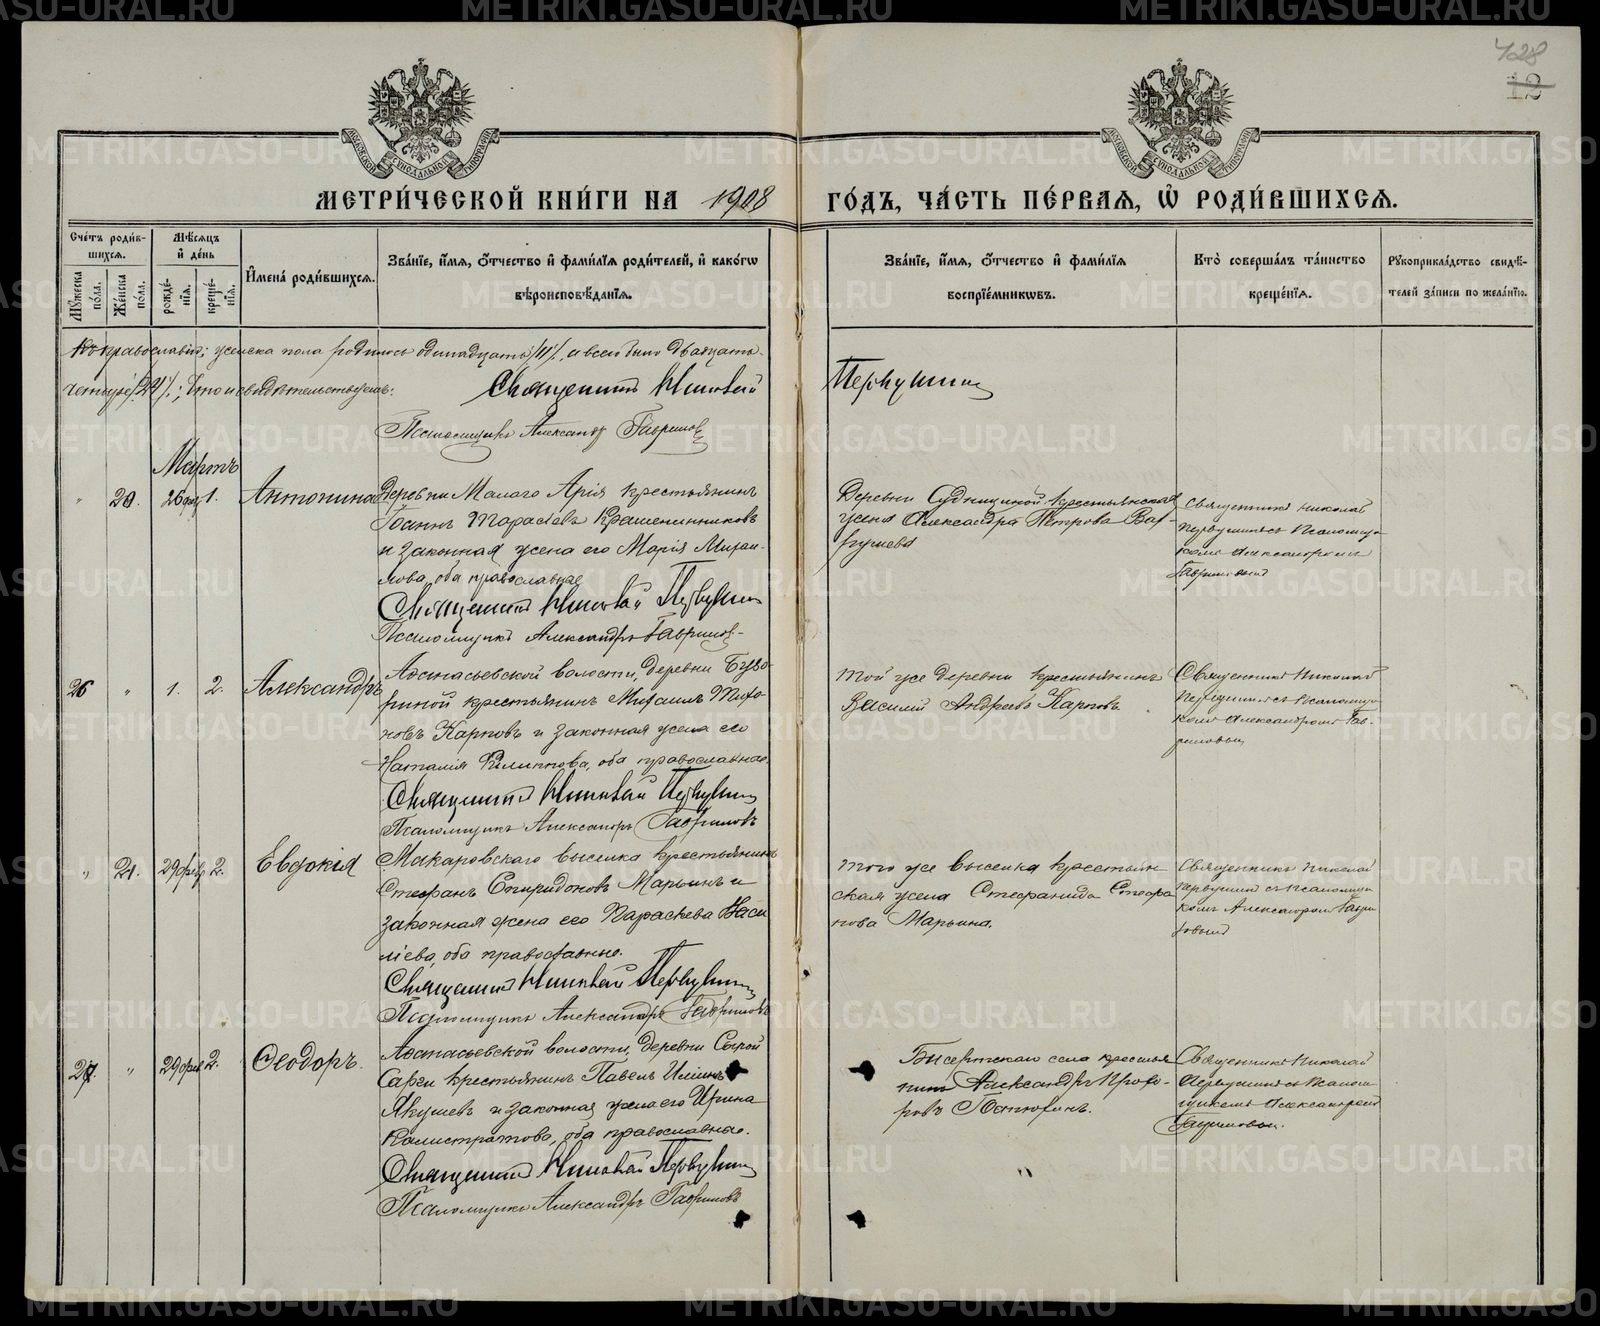 428
12
МОСКОВСКОЙ СѴНОДАЛЬНОЙ ТИПОГРАФІИ
МОСКОВСКОЙ СѴНОДАЛЬНОЙ ТИПОГРАФІИ
МЕТРИ́ЧЕСКОЙ КНИ́ГИ НА 1908 ГО́ДЪ, ЧА́СТЬ ПЕ́РВАѦ, Ѡ҆ РОДИ́ВШИХСѦ.
Сче́тъ роди́вшихсѧ.
Мꙋ́жеска по́ла.
Же́нска по́ла.
Мѣ́сѧцъ и҆ де́нь
рожде́нїѧ.
креще́нїѧ.
И҆мена̀ роди́вшихсѧ.
Зва́нїе, и҆́мѧ, ѻ҆́тчество и҆ фами́лїѧ роди́телей, и҆ како́гѡ
вѣроисповѣ́данїѧ.
Зва́нїе, и҆́мѧ, ѻ҆́тчество и҆ фами́лїѧ
воспрїе́мникѡвъ.
Кто̀ соверша́лъ та́инство
креще́нїѧ.
Рꙋкоприкла́дство свидѣ́-
телей за́писи по жела́нїю.
православія; женска пола родилось одинадцать /11/, а всего было двадцать
четыре /24/; что и свидѣтельствуемъ:
Священникъ Николай Первушинъ
Псаломщикъ Александръ Гавриловъ
Мартъ
" 20. 26 фев 1. Антонина
Деревни Малаго Арія крестьянинъ
Іоаннъ Тарасіевъ Крашенинниковъ
и законная жена его Марія Михаи-
лова, оба православные
Священникъ Николай Первушинъ
Псаломщикъ Александръ Гавриловъ
крестьянская
жена Александра Петрова
Священникъ Николай
Первушинъ съ псаломщи-
комъ Александромъ
Гавриловымъ
26 " 1. 2. Александръ
Аѳанасьевской волости, деревни
крестьянинъ Михаилъ Тихо-
новъ Карповъ и законная жена его
Наталія Филиппова, оба православные.
Священникъ Николай Первушинъ
Псаломщикъ Александръ Гавриловъ
Той же деревни крестьянинъ
Василій Андреевъ Карповъ
Священникъ Николай
Первушинъ съ псаломщи-
комъ Александромъ Гав-
риловымъ
" 21. 29 февр 2. Евдокія
Макаровскаго выселка крестьянинъ
Стефанъ Спиридоновъ Марьинъ и
законная жена его Параскева Васи
ліева, оба православные.
Священникъ Николай Первушинъ
Псаломщикъ Александръ Гавриловъ
Того же выселка крестьян
ская жена Стефанида Стефа
нова Марьина.
Священникъ Николай
Первушинъ съ псаломщи
комъ Александромъ Гаври
ловымъ
27. " 29 фев 2. Ѳеодоръ.
Аѳанасьевской волости, деревни Сырой
Сарги крестьянинъ Павелъ Илиинъ
Якушевъ и законная жена его Ирина
Калистратова, оба православные.
Священникъ Николай Первушинъ
Псаломщикъ Александръ Гавриловъ
Бисертскаго села крестья
нинъ Александръ Прохо-
ровъ
Священникъ Николай
Первушинъ съ псалом-
щикомъ Александромъ
Гавриловымъ.